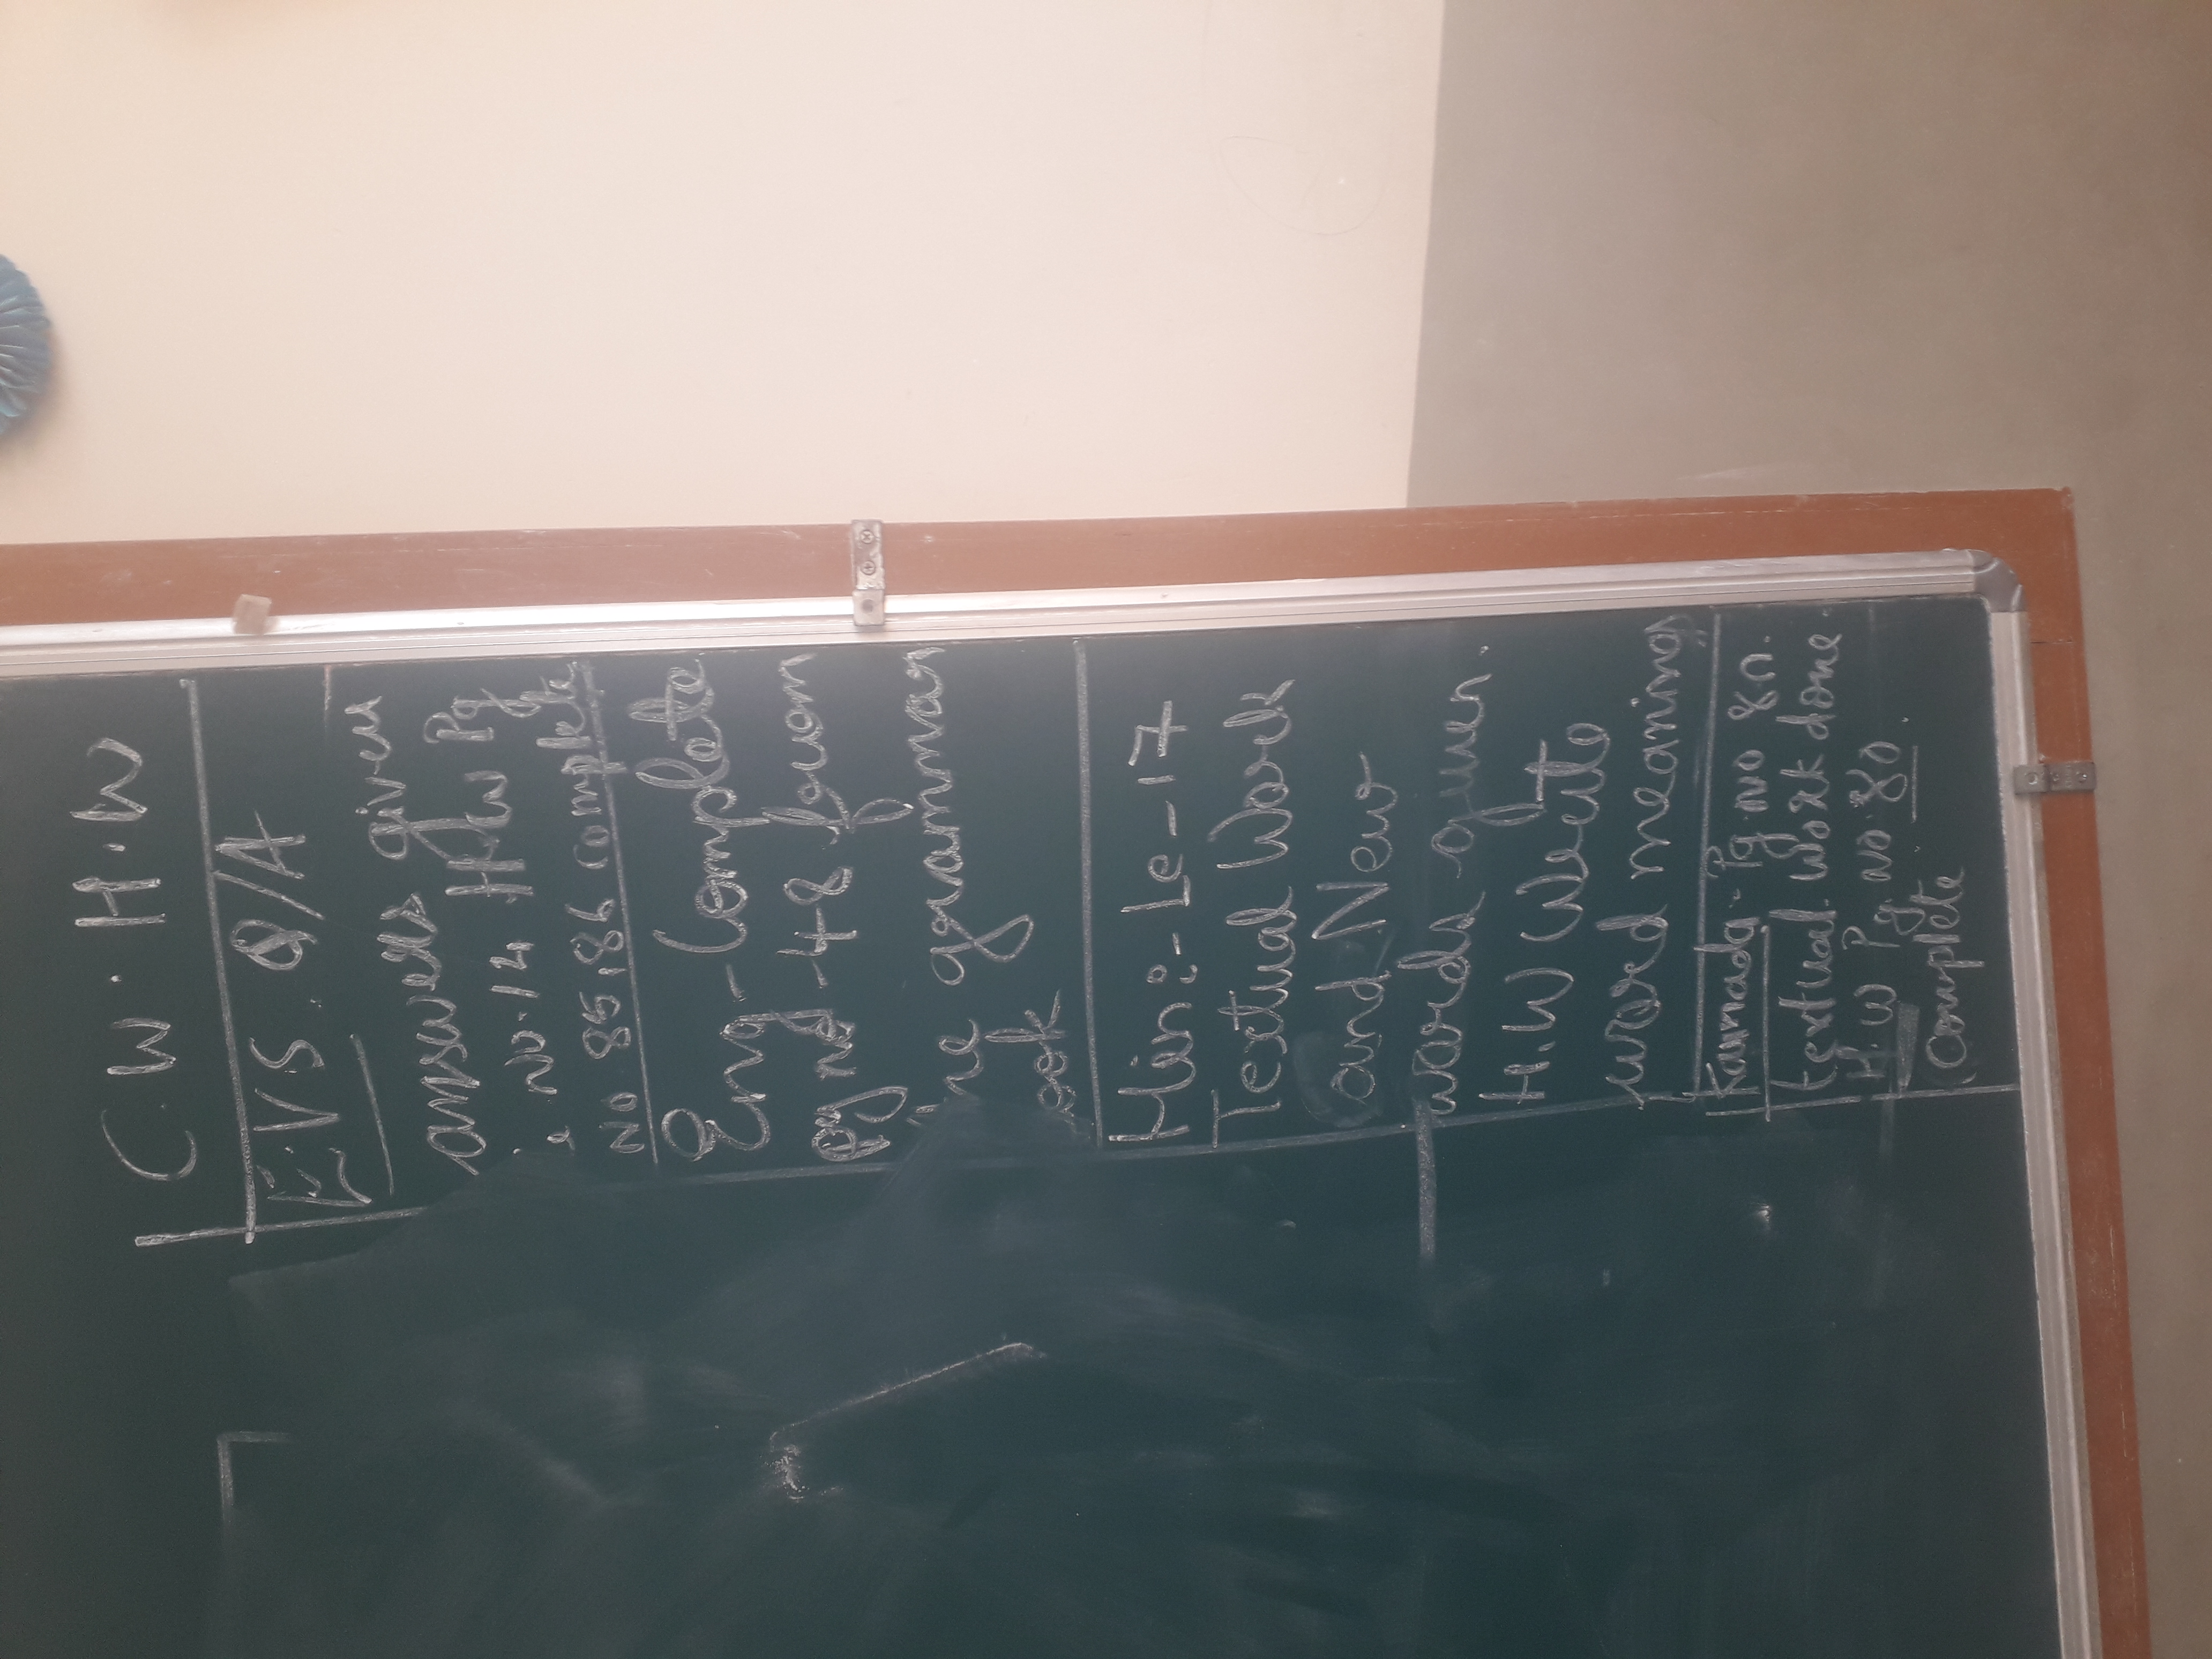 C.W. H.W
EVS. Q/A
answers given
H/W Pg
No. 12,
No 85,86 complete
Eng - Complete
pg no - 48 from
the grammar
book
Hin :- Le-17
Textual Work
and New
words given.
H.W Write
word meaning
Kannada - Pg no 80.
textual work done.
H.W Pg no 80.
Complete